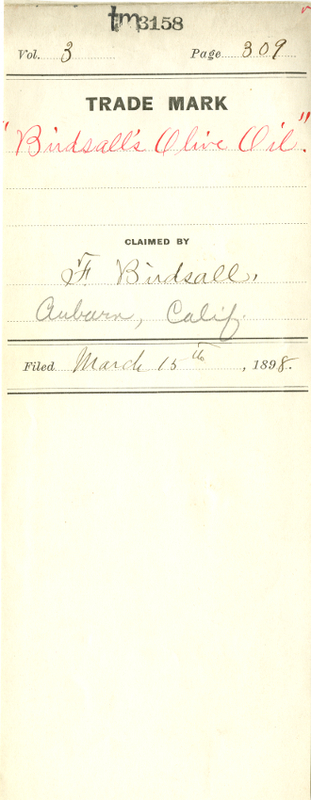 tm3158
Vol. 3 Page 309
TRADE MARK
"Birdsall's Olive Oil".
CLAIMED BY
F. Birdsall,
Auburn, Calif.
Filed March 15th, 1898.